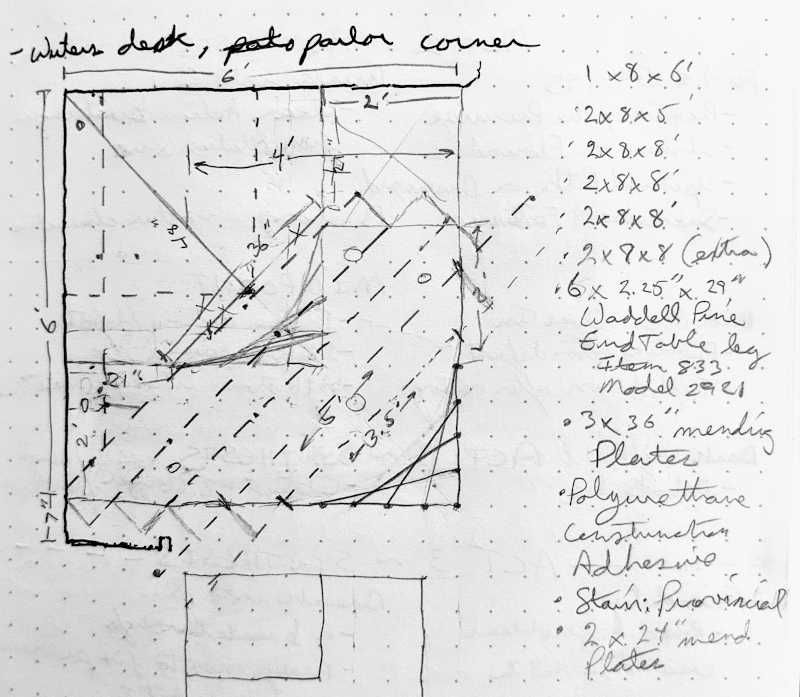 - Writers desk, patio parlor corner
6'
2'
4'
18"
36"
6'
21"
2'
5'
3.5'
7"
1 x 8 x 6'
2 x 8 x 5'
2 x 8 x 8'
2 x 8 x 8'
2 x 8 x 8'
2 x 8 x 8 (extra)
6 x 2.25" x 29"
Waddell Pine
End Table leg
Item 833
Model 2921
• 3 x 36" mending
Plates
• Polyurethane
Construction
Adhesive
• Stain: Provincial
• 2 x 24" mend
Plates